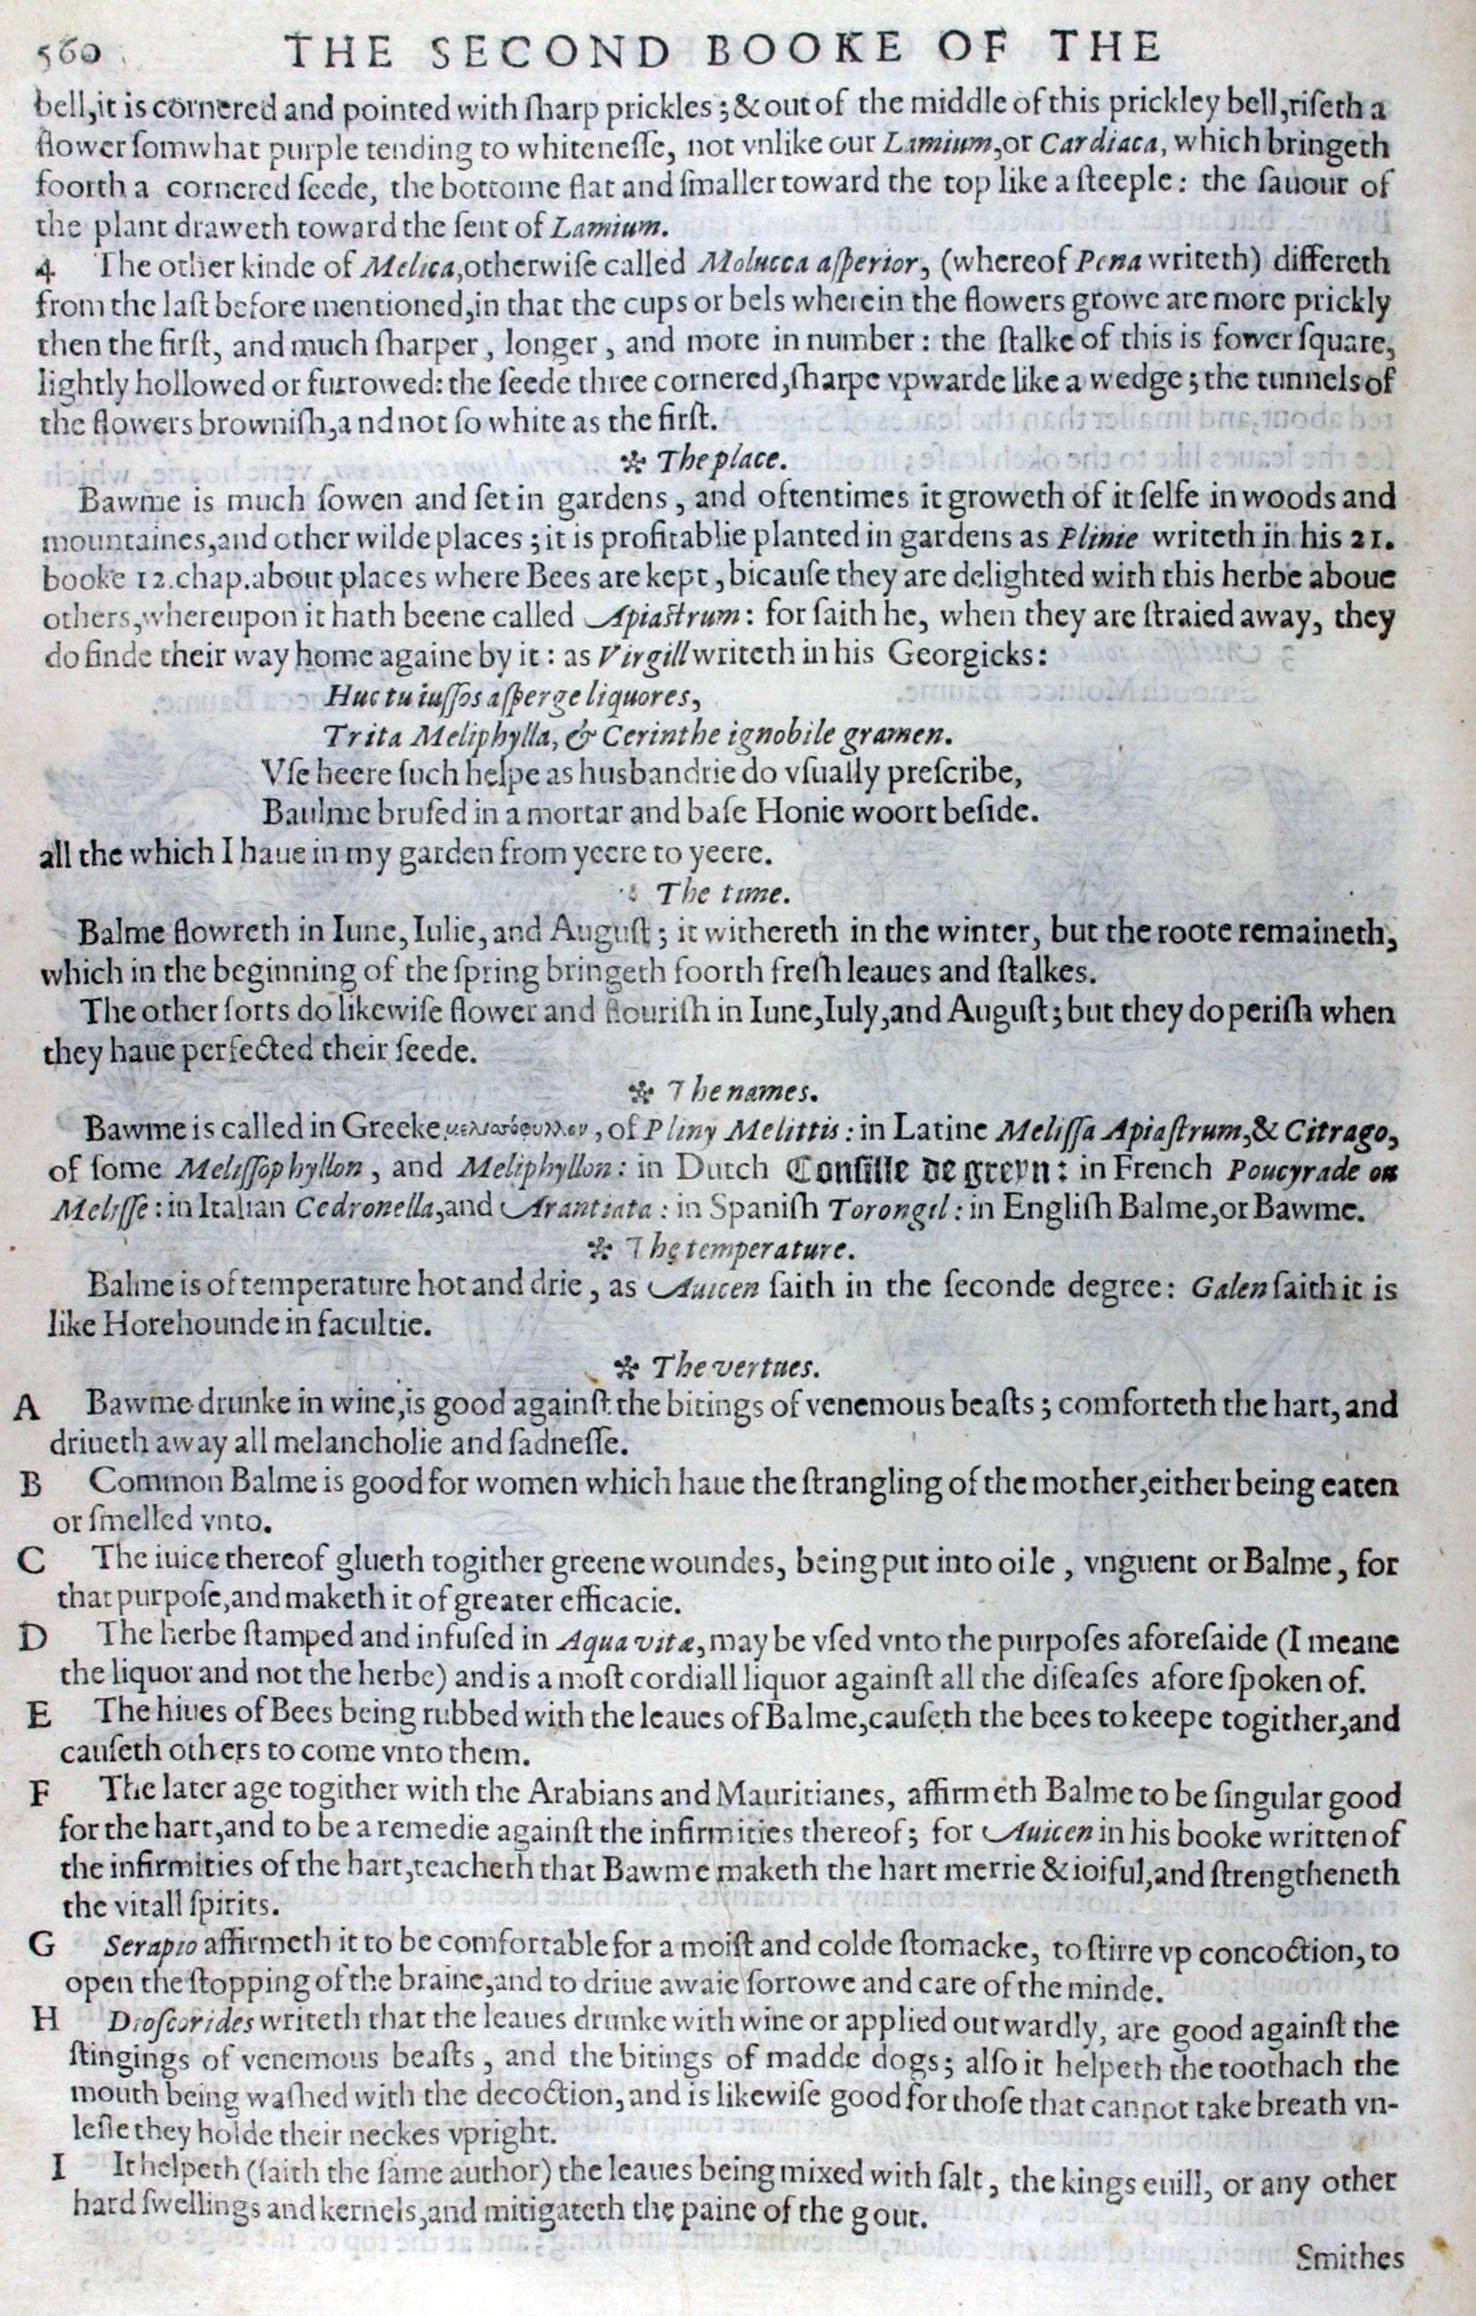 560 THE SECOND BOOKE OF THE
bell, it is cornered and pointed with ſharp prickles; & out of the middle of this prickley bell, riſeth a
flower ſomwhat purple tending to whiteneſſe, not vnlike our Lamium, or Cardiaca, which bringeth
foorth a cornered ſeede, the bottome flat and ſmaller toward the top like a ſteeple: the ſauour of
the plant draweth toward the ſent of Lamium.
4 The other kinde of Melica, otherwiſe called Molucca aſperior, (whereof Pena writeth) differeth
from the laſt before mentioned, in that the cups or bels wherein the flowers growe are more prickly
then the firſt, and much ſharper, longer, and more in number: the ſtalke of this is fower ſquare,
lightly hollowed or furrowed: the ſeede three cornered, ſharpe vpwarde like a wedge; the tunnels of
the flowers browniſh, and not ſo white as the firſt.
❋ The place.
Bawme is much ſowen and ſet in gardens, and oftentimes it groweth of it ſelfe in woods and
mountaines, and other wilde places; it is profitablie planted in gardens as Plinie writeth in his 21.
booke 12. chap. about places where Bees are kept, bicauſe they are delighted with this herbe aboue
others, whereupon it hath beene called Apiaſtrum: for ſaith he, when they are ſtraied away, they
do finde their way home againe by it: as Virgill writeth in his Georgicks:
Huc tu iuſſos aſperge liquores,
Trita Meliphylla, & Cerinthe ignobile gramen.
Vſe heere ſuch helpe as husbandrie do vſually preſcribe,
Baulme bruſed in a mortar and baſe Honie woort beſide.
all the which I haue in my garden from yeere to yeere.
The time.
Balme flowreth in Iune, Iulie, and Auguſt; it withereth in the winter, but the roote remaineth,
which in the beginning of the ſpring bringeth foorth freſh leaues and ſtalkes.
The other ſorts do likewiſe flower and flouriſh in Iune, Iuly, and Auguſt; but they do periſh when
they haue perfected their ſeede.
❋ The names.
Bawme is called in Greeke μελισσόφυλλον, of Pliny Melittis: in Latine Meliſſa Apiaſtrum, & Citrago,
of ſome Meliſſophyllon, and Meliphyllon: in Dutch Conſille de greyn: in French Poucyrade ou
Meliſſe: in Italian Cedronella, and Arantiata: in Spaniſh Torongil: in Engliſh Balme, or Bawme.
❋ The temperature.
Balme is of temperature hot and drie, as Auicen ſaith in the ſeconde degree: Galen ſaith it is
like Horehounde in facultie.
❋ The vertues.
A Bawme drunke in wine, is good againſt the bitings of venemous beaſts; comforteth the hart, and
driueth away all melancholie and ſadneſſe.
B Common Balme is good for women which haue the ſtrangling of the mother, either being eaten
or ſmelled vnto.
C The iuice thereof glueth togither greene woundes, being put into oile, vnguent or Balme, for
that purpoſe, and maketh it of greater efficacie.
D The herbe ſtamped and infuſed in Aqua vitæ, may be vſed vnto the purpoſes aforeſaide (I meane
the liquor and not the herbe) and is a moſt cordiall liquor againſt all the diſeaſes afore ſpoken of.
E The hiues of Bees being rubbed with the leaues of Balme, cauſeth the bees to keepe togither, and
cauſeth others to come vnto them.
F The later age togither with the Arabians and Mauritianes, affirmeth Balme to be ſingular good
for the hart, and to be a remedie againſt the infirmities thereof; for Auicen in his booke written of
the infirmities of the hart, teacheth that Bawme maketh the hart merrie & ioiful, and ſtrengtheneth
the vitall ſpirits.
G Serapio affirmeth it to be comfortable for a moiſt and colde ſtomacke, to ſtirre vp concoction, to
open the ſtopping of the braine, and to driue awaie ſorrowe and care of the minde.
H Dioſcorides writeth that the leaues drunke with wine or applied outwardly, are good againſt the
ſtingings of venemous beaſts, and the bitings of madde dogs; alſo it helpeth the toothach the
mouth being waſhed with the decoction, and is likewiſe good for thoſe that cannot take breath vn-
leſſe they holde their neckes vpright.
I It helpeth (ſaith the ſame author) the leaues being mixed with ſalt, the kings euill, or any other
hard ſwellings and kernels, and mitigateth the paine of the gout.
Smithes